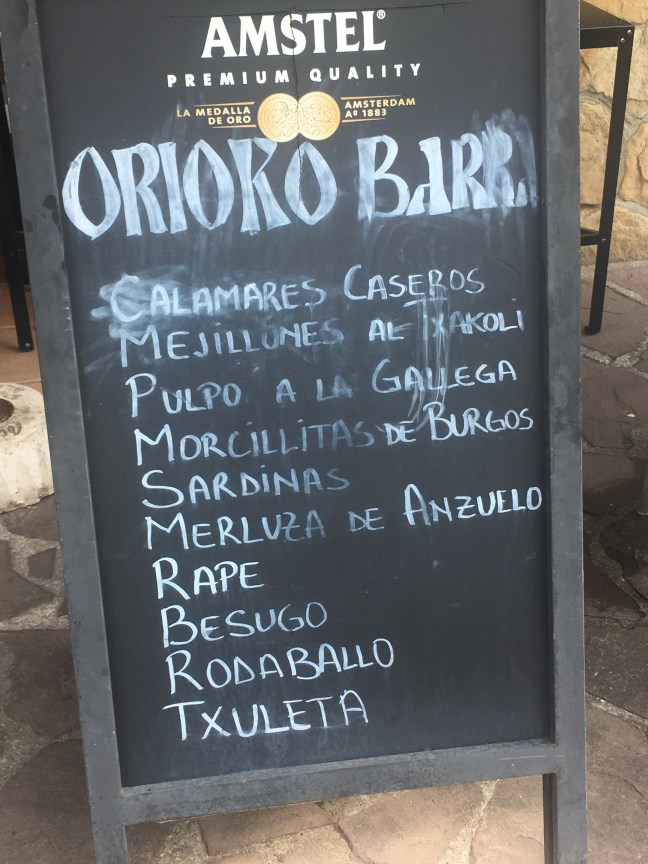 AMSTEL®
PREMIUM QUALITY
LA MEDALLA DE ORO
AMSTERDAM Aº 1883
ORIOKO BARRA
CALAMARES CASEROS
MEJILLONES AL TXAKOLI
PULPO A LA GALLEGA
MORCILLITAS DE BURGOS
SARDINAS
MERLUZA DE ANZUELO
RAPE
BESUGO
RODABALLO
TXULETA